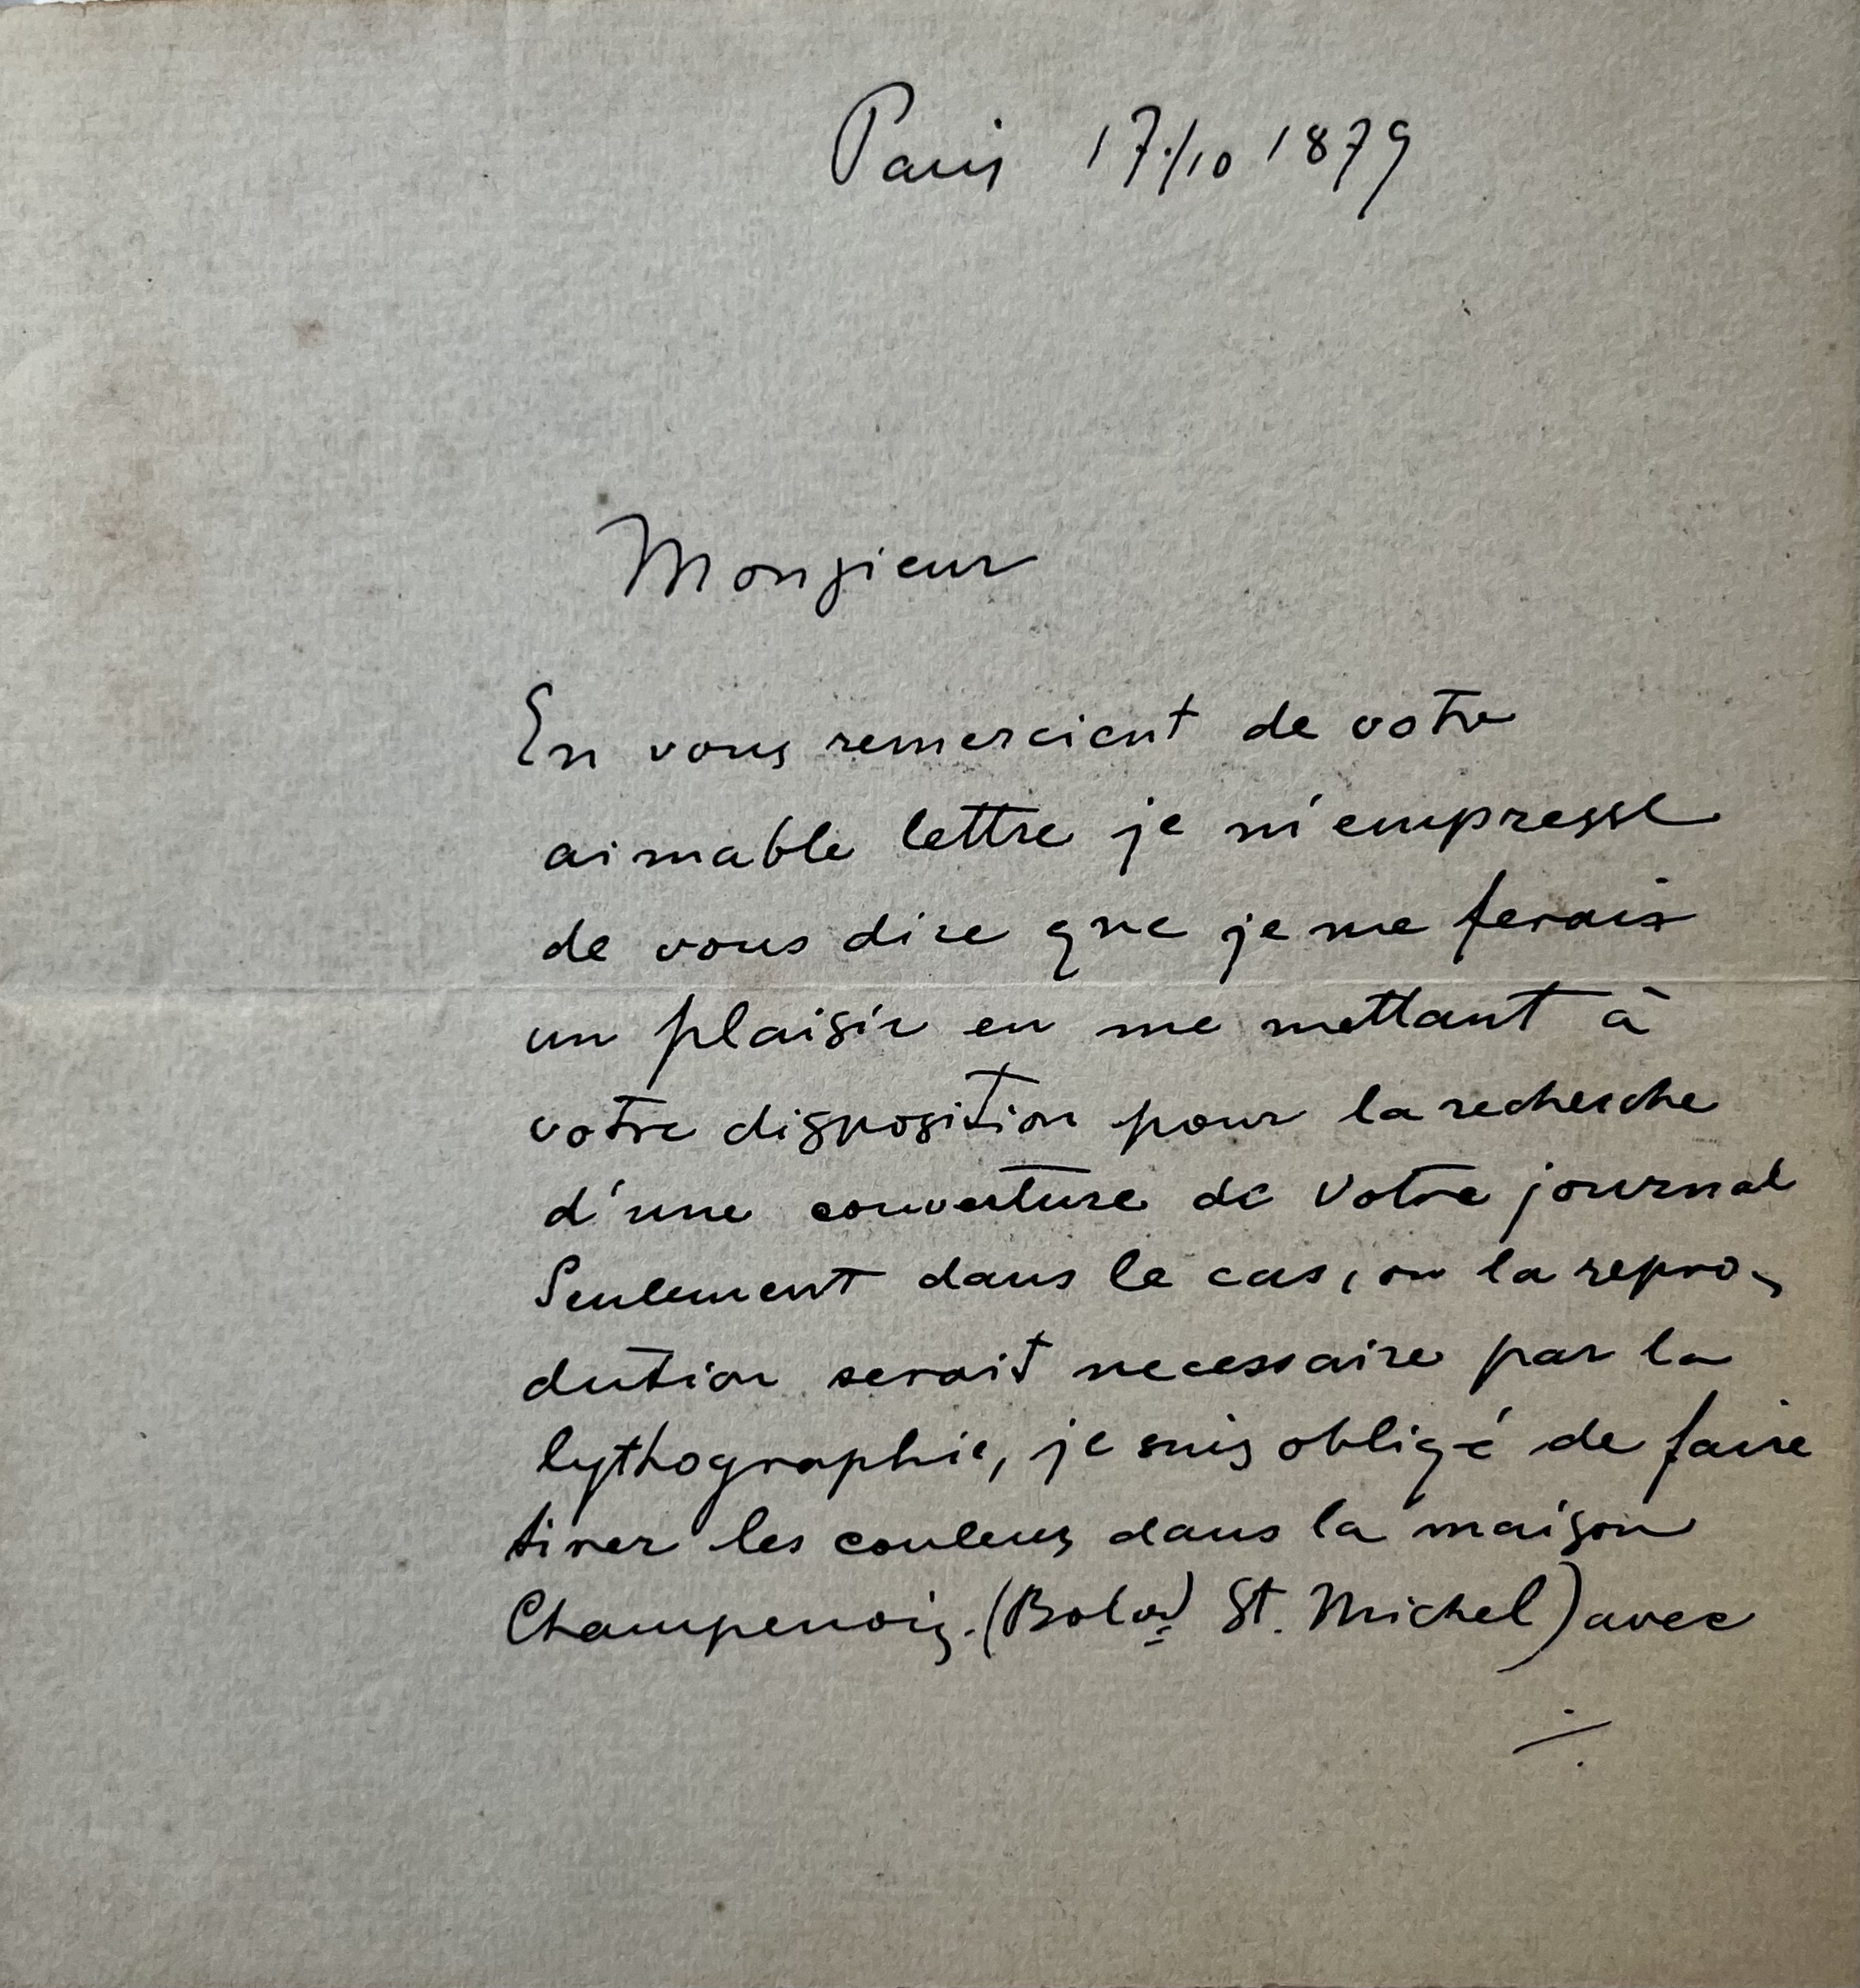 Paris 17./10 1879
Monsieur
En vous remercient de votre
aimable lettre je m'empresse
de vous dire que je me ferais
un plaisir en me mettant à
votre disposition pour la recherche
d'une couverture de votre journal
Seulement dans le cas, ou la repro-
dution serait necessaire par la
lythographie, je suis obligé de faire
tirer les couleurs dans la maison
Champenois. (Bolvd St. Michel) avec
./.